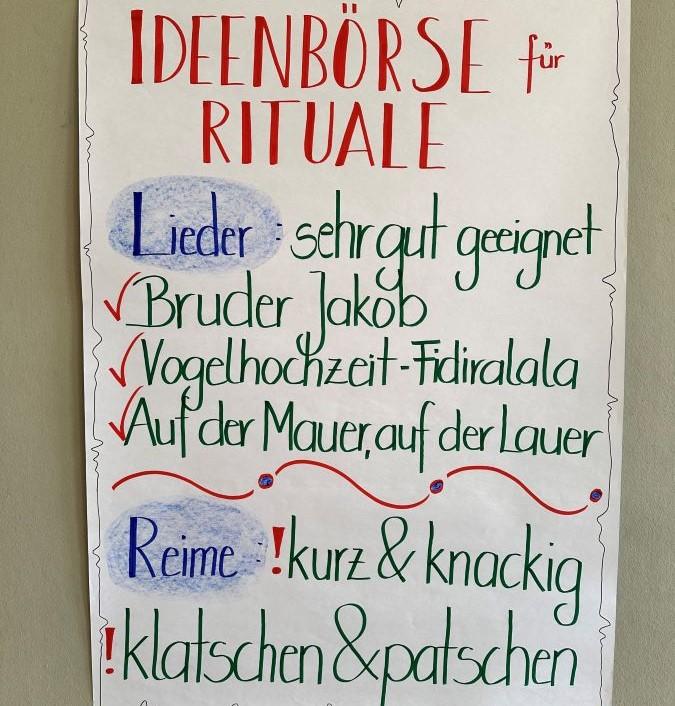 IDEENBÖRSE für
RITUALE
Lieder: sehr gut geeignet
✓ Bruder Jakob
✓ Vogelhochzeit - Fidiralala
✓ Auf der Mauer, auf der Lauer
Reime: ! kurz & knackig
! klatschen & patschen